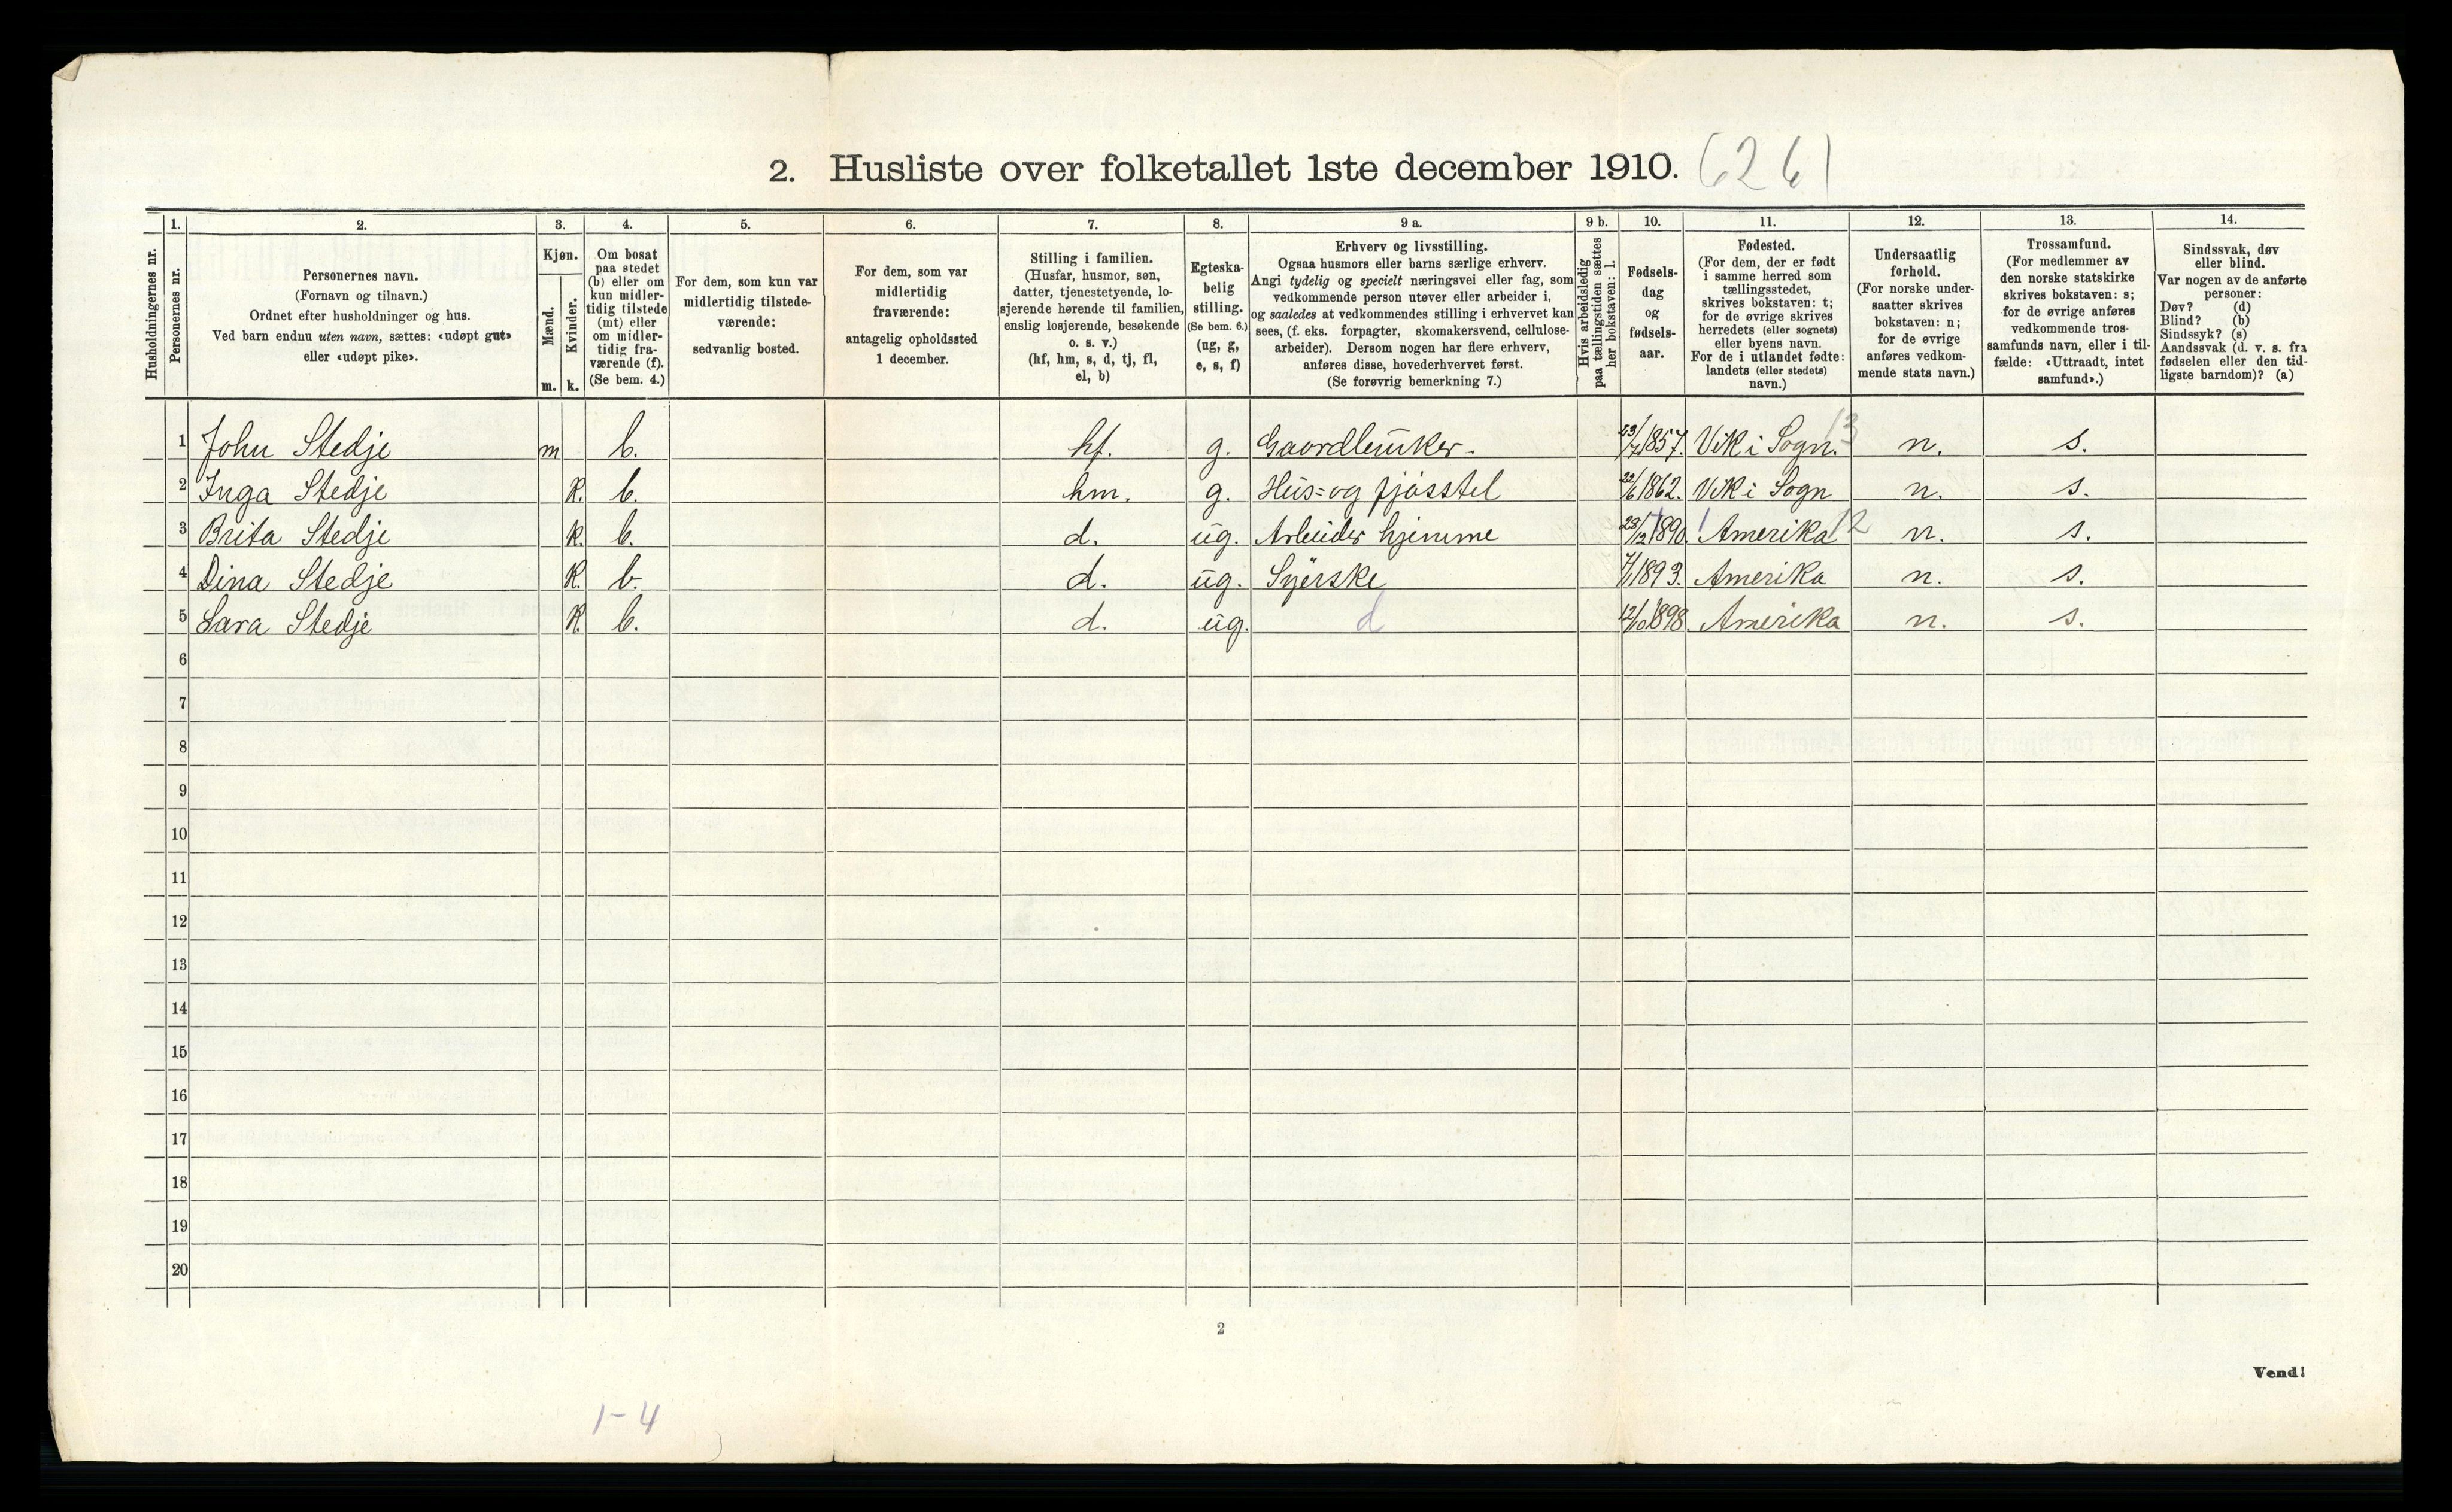 2. Husliste over folketallet 1ste december 1910. 6261
1. 2. 3. 4. 5. 6. 7. 8. 9 a. 9 b. 10. 11. 12. 13. 14.
Husholdningernes nr.
Personernes nr.
Personernes navn.
(Fornavn og tilnavn.)
Ordnet efter husholdninger og hus.
Ved barn endnu uten navn, sættes: «udøpt gut»
eller «udøpt pike».
Kjøn.
Mænd.
Kvinder.
m. k.
Om bosat
paa stedet
(b) eller om
kun midler-
tidig tilstede
(mt) eller
om midler-
tidig fra-
værende (f).
(Se bem. 4.)
For dem, som kun var
midlertidig tilstede-
værende:
sedvanlig bosted.
For dem, som var
midlertidig
fraværende:
antagelig opholdssted
1 december.
Stilling i familien.
(Husfar, husmor, søn,
datter, tjenestetyende, lo-
sjerende hørende til familien,
enslig losjerende, besøkende
o. s. v.)
(hf, hm, s, d, tj, fl,
el, b)
Egteska-
belig
stilling.
(Se bem. 6.)
(ug, g,
e, s, f)
Erhverv og livsstilling.
Ogsaa husmors eller barns særlige erhverv.
Angi tydelig og specielt næringsvei eller fag, som
vedkommende person utøver eller arbeider i,
og saaledes at vedkommendes stilling i erhvervet kan
sees, (f. eks. forpagter, skomakersvend, cellulose-
arbeider). Dersom nogen har flere erhverv,
anføres disse, hovederhvervet først.
(Se forøvrig bemerkning 7.)
Hvis arbeidsledig
paa tællingstiden sættes
her bokstaven: l.
Fødsels-
dag
og
fødsels-
aar.
Fødested.
(For dem, der er født
i samme herred som
tællingsstedet,
skrives bokstaven: t;
for de øvrige skrives
herredets (eller sognets)
eller byens navn.
For de i utlandet fødte:
landets (eller stedets)
navn.)
Undersaatlig
forhold.
(For norske under-
saatter skrives
bokstaven: n;
for de øvrige
anføres vedkom-
mende stats navn.)
Trossamfund.
(For medlemmer av
den norske statskirke
skrives bokstaven: s;
for de øvrige anføres
vedkommende tros-
samfunds navn, eller i til-
fælde: «Uttraadt, intet
samfund».)
Sindssvak, døv
eller blind.
Var nogen av de anførte
personer:
Døv? (d)
Blind? (b)
Sindssyk? (s)
Aandssvak (d. v. s. fra
fødselen eller den tid-
ligste barndom)? (a)
1 John Stedje m b. hf. g. Gaardbruker. 23/7 1857. Vik i Sogn. 13 n. s.
2 Inga Stedje k. b. hm. g. Hus= og fjøsstel 22/6 1862. Vik i Sogn n. s.
3 Brita Stedje k. b. d. ug. Arbeider hjemme 28/12 1890. Amerika 12 n. s.
4 Dina Stedje k. b. d. ug. Syerske 1893. Amerika n. s.
5 Lara Stedje k. b. d. ug. d 12/10 1898 Amerika n. s.
6
7
8
9
10
11
12
13
14
15
16
17
18
19
20
2
Vend!
1-4